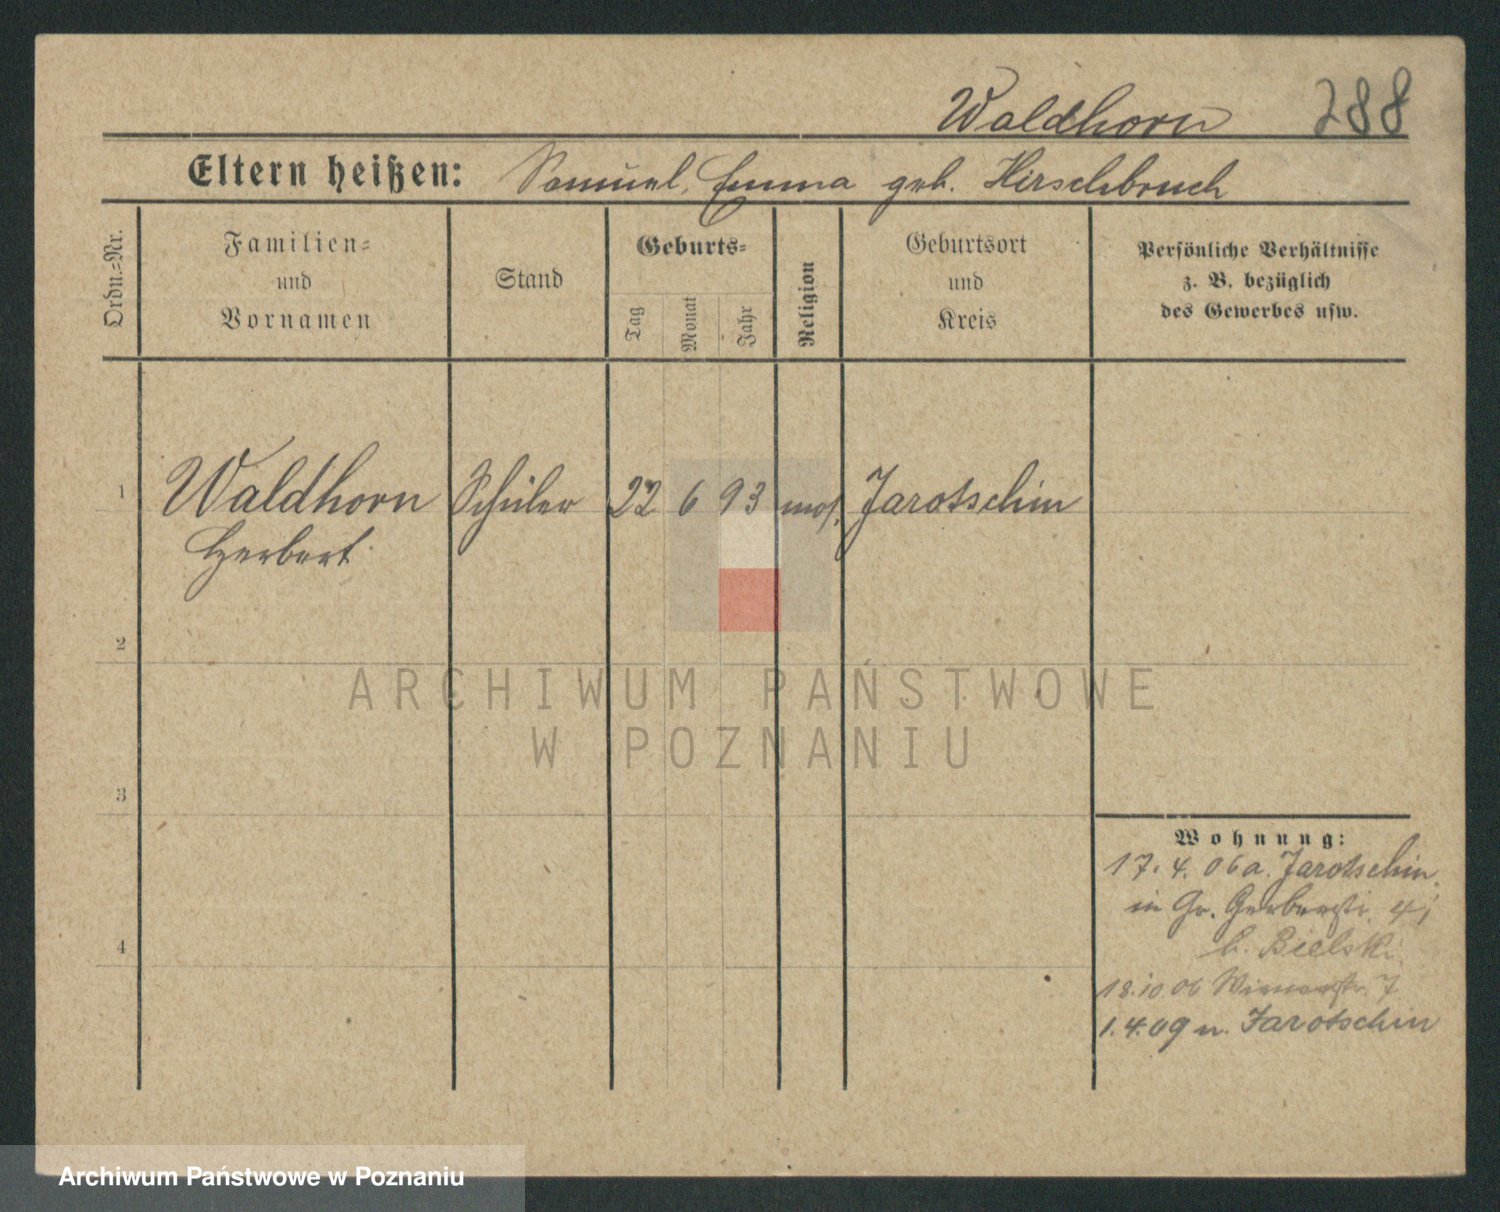 Waldhorn 288
Eltern heißen: Samuel, Emma geb. Hirschbruch
Ordn.=Nr.
Familien=
und
Vornamen
Stand
Geburts=
Tag
Monat
Jahr
Religion
Geburtsort
und
Kreis
Persönliche Verhältnisse
z. B. bezüglich
des Gewerbes usw.
1 Waldhorn Schüler 22 6 93 mos. Jarotschin
Herbert
2
3
4
Wohnung:
17. 4. 06 a. Jarotschin
in Gr. Gerberstr. 41
b. Bielski
18.10.06 Wienerstr. 7
1.4.09 n. Jarotschin
ARCHIWUM PAŃSTWOWE
W POZNANIU
Archiwum Państwowe w Poznaniu